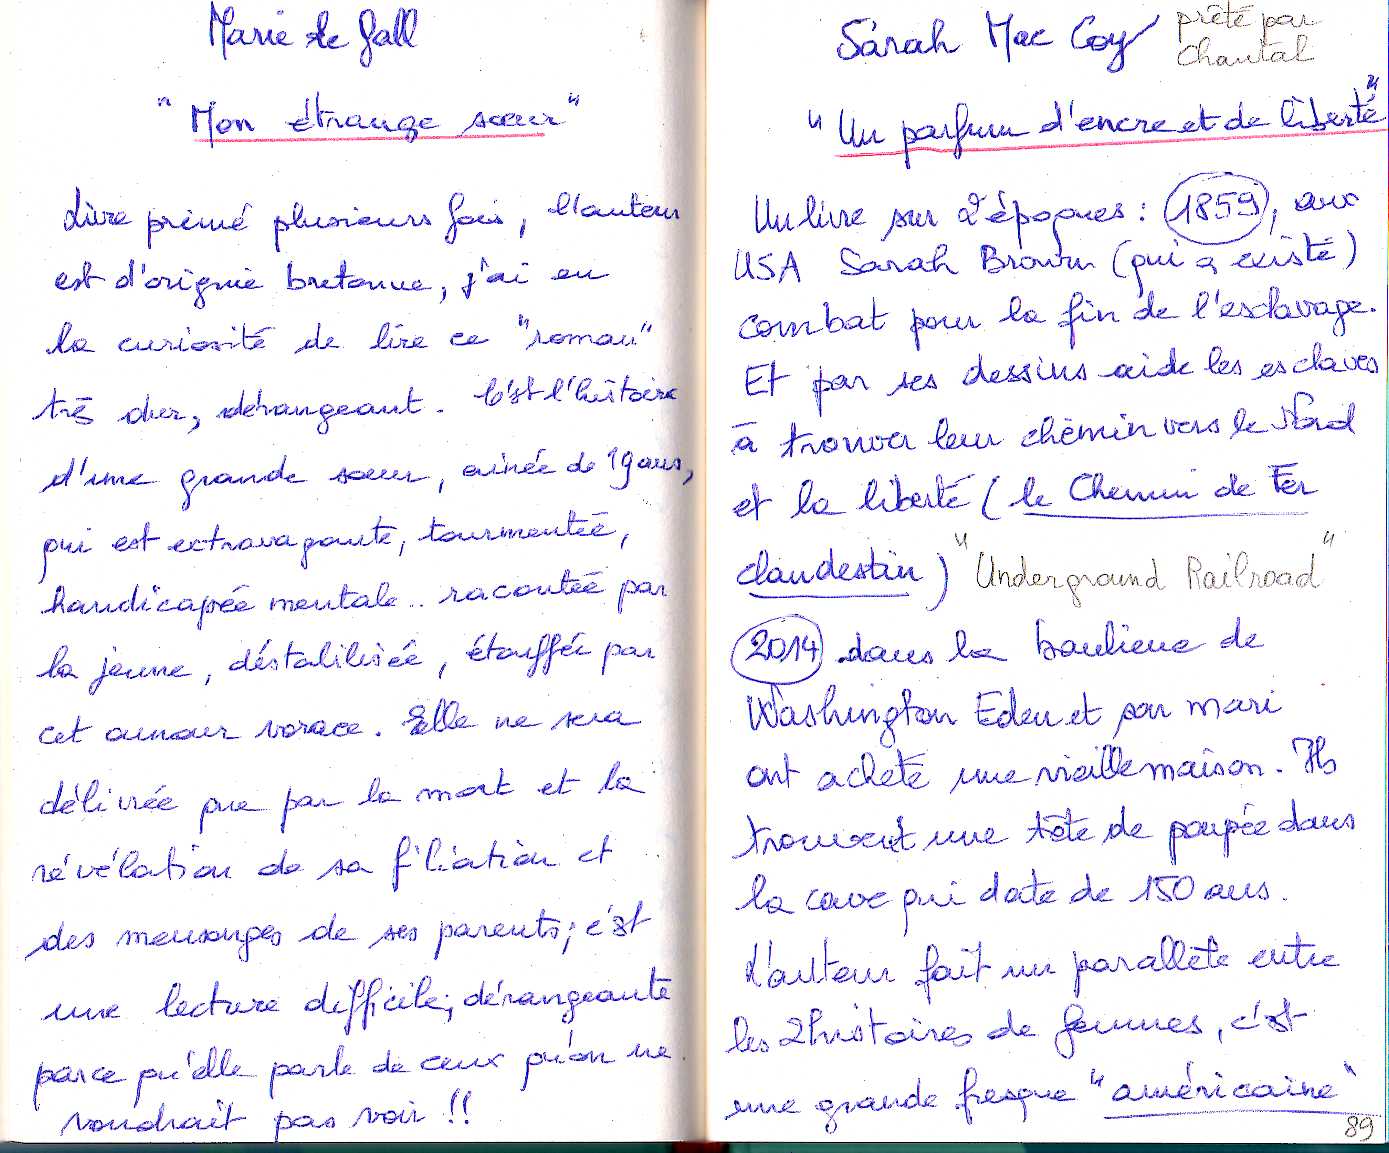 Marie Le Gall
"Mon étrange sœur"
Livre primé plusieurs fois, l'auteur
est d'origine bretonne, j'ai eu
la curiosité de lire ce "roman"
très dur, dérangeant. C'est l'histoire
d'une grande sœur, ainée de 19 ans,
qui est extravagante, tourmentée,
handicapée mentale.. racontée par
la jeune, déstabilisée, étouffée par
cet amour vorace. Elle ne sera
délivrée que par la mort et la
révélation de sa filiation et
des mensonges de ses parents; c'est
une lecture difficile, dérangeante
parce qu'elle parle de ceux qu'on ne
voudrait pas voir !!
Sarah Mac Coy prêté par
Chantal
"Un parfum d'encre et de liberté"
Un livre sur 2 époques : 1859, aux
USA Sarah Brown (qui a existé)
combat pour la fin de l'esclavage.
Et par ses dessins aide les esclaves
à trouver leur chemin vers le Nord
et la liberté (le Chemin de Fer
clandestin) "Underground Railroad"
2014 dans la banlieue de
Washington Eden et son mari
ont acheté une vieille maison. Ils
trouvent une tête de poupée dans
la cave qui date de 150 ans.
L'auteur fait un parallèle entre
les 2 histoires de femmes, c'est
une grande fresque "américaine"
89